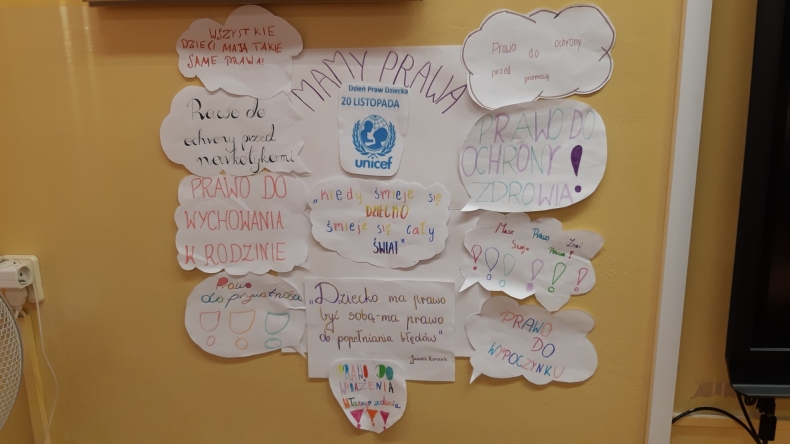 WSZYSTKIE
DZIECI MAJĄ TAKIE
SAME PRAWA!
MAMY PRAWA
Dzień Praw Dziecka
20 LISTOPADA
unicef
Prawo do ochrony
przed przemocą
Prawo do
ochrony przed
narkotykami
PRAWO DO
OCHRONY
ZDROWIA!
PRAWO DO
WYCHOWANIA
W RODZINIE
„Kiedy śmieje się
DZIECKO
śmieje się cały
ŚWIAT"
Masz Prawo Znać
Swoje Prawa!
!!!!!!
Prawo
do prywatności
!!!
„Dziecko ma prawo
być sobą-ma prawo
do popełniania błędów"
Janusz Korczak
PRAWO
DO
WYPOCZYNKU
PRAWO DO
WYRAŻENIA
własnego zdania
!!!